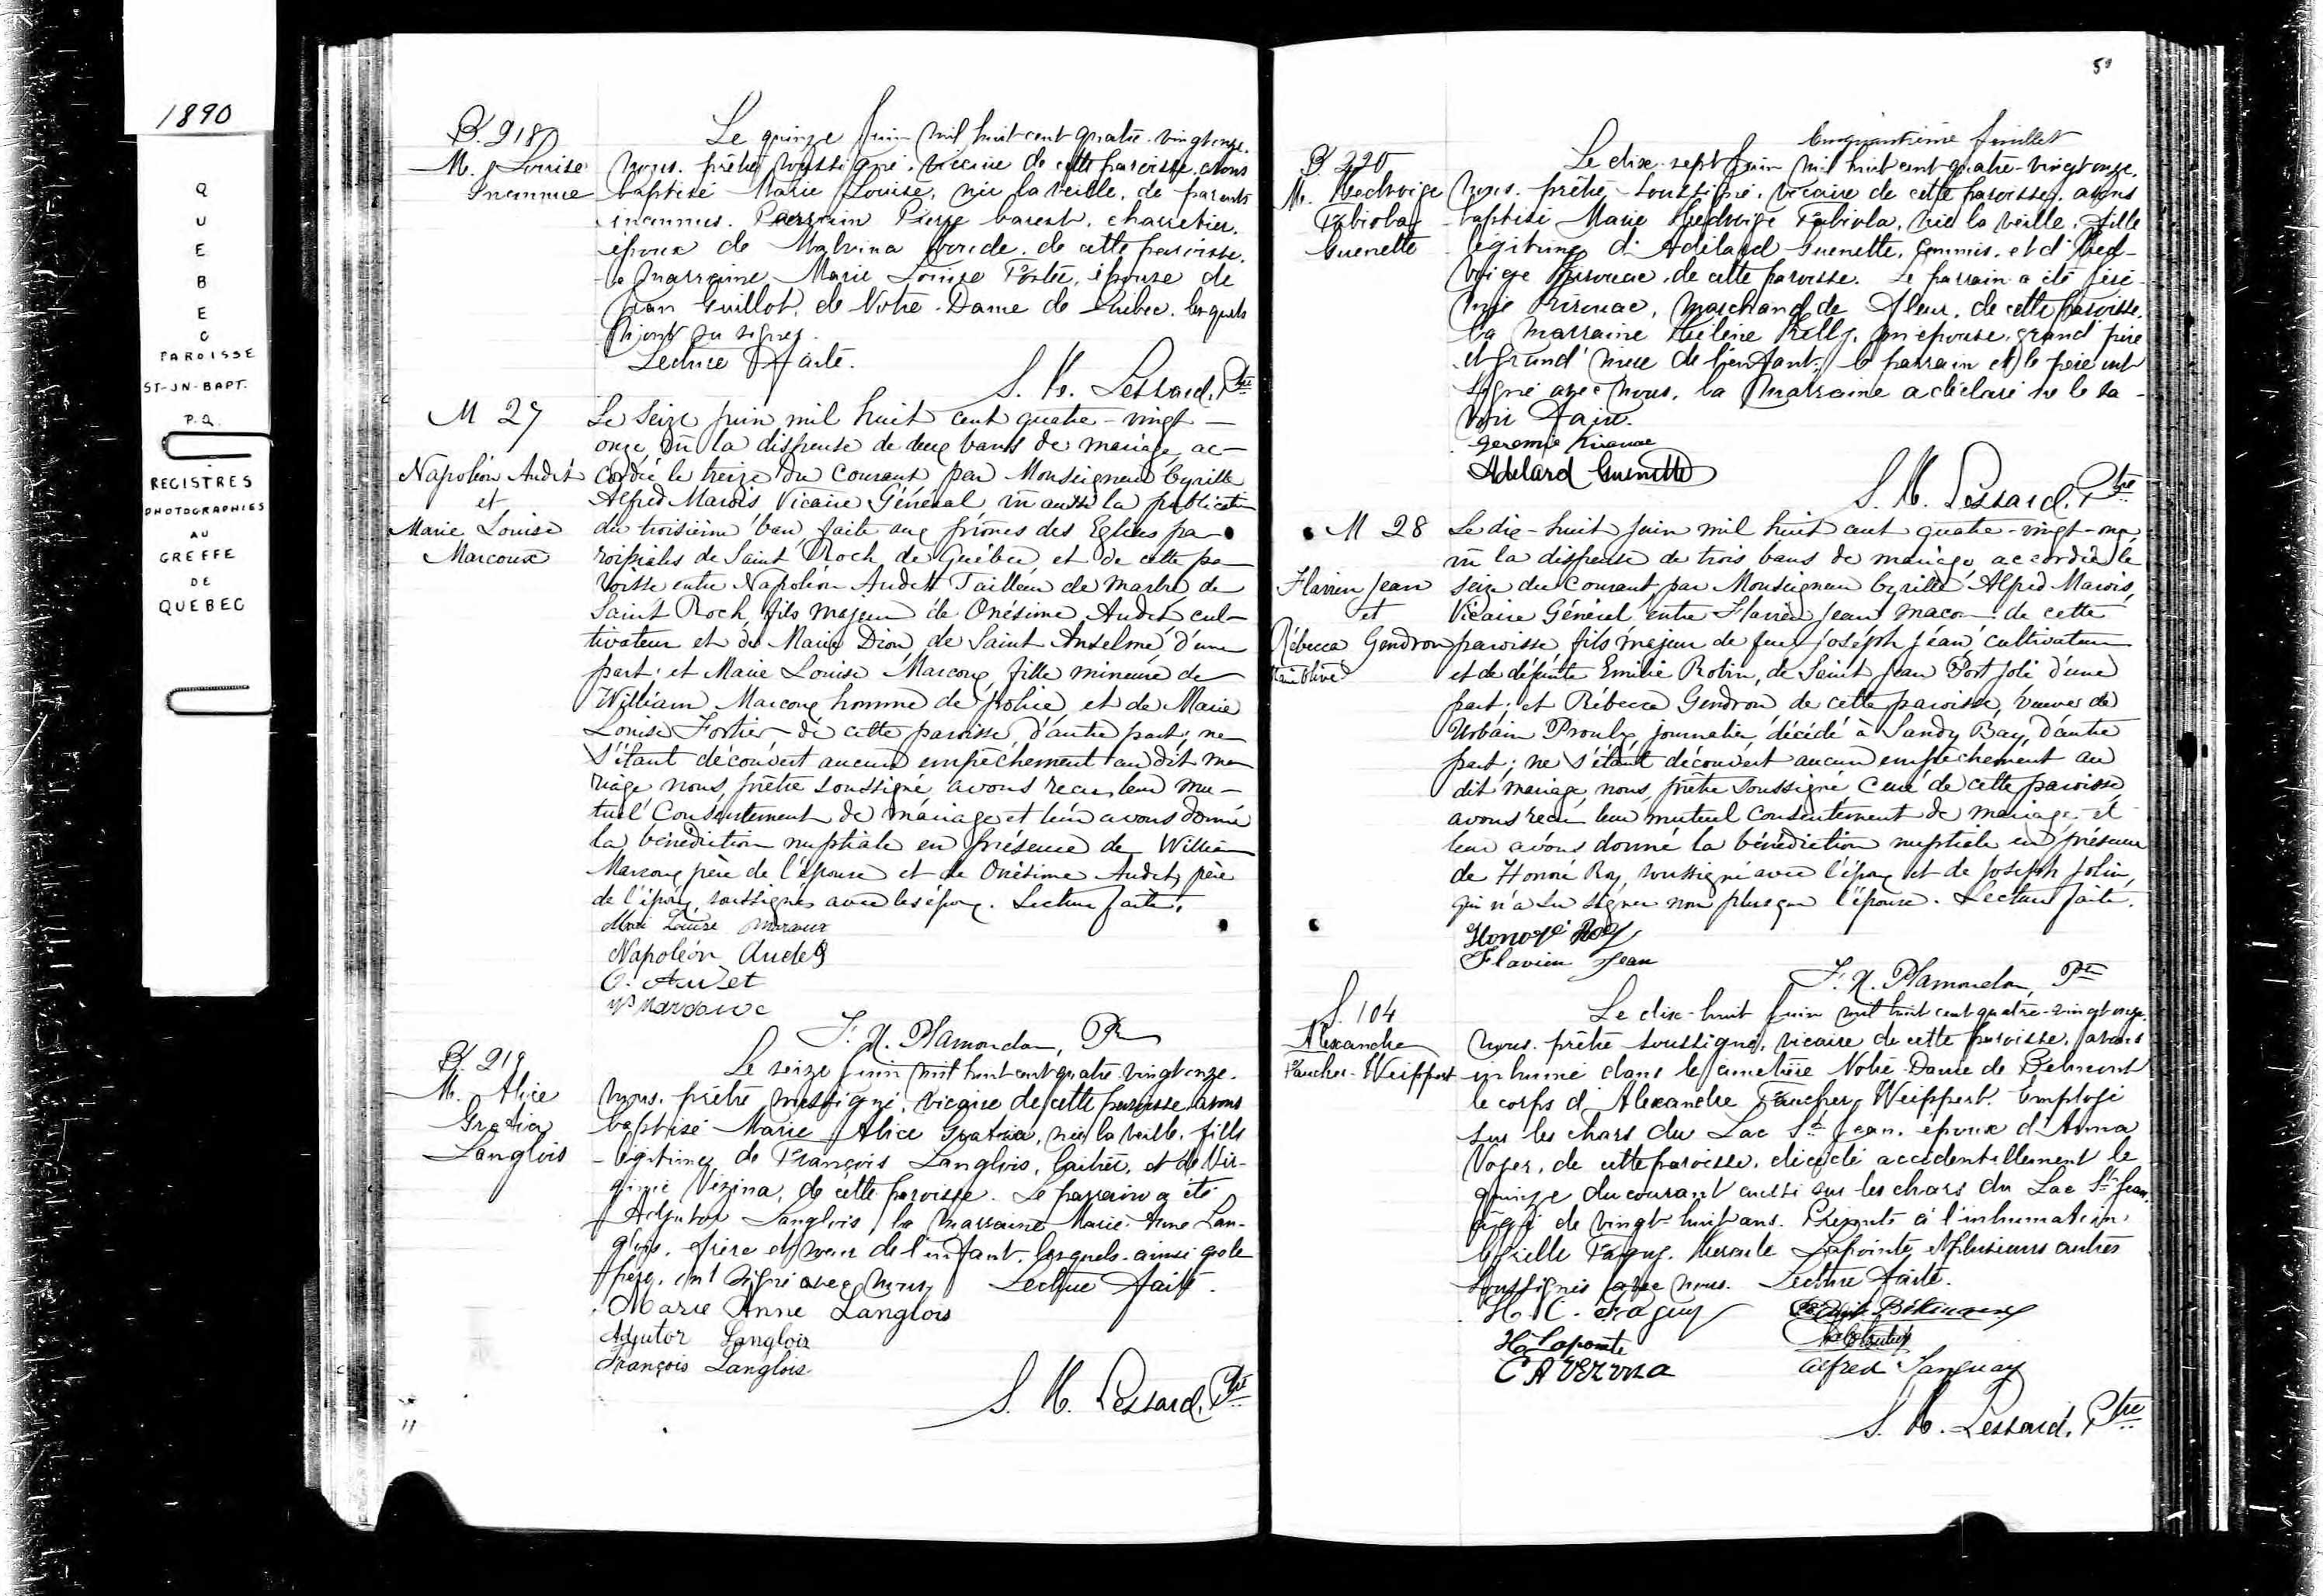 1890
QUEBEC
PAROISSE
ST-JN-BAPT.
P.Q.
REGISTRES
PHOTOGRAPHIES
AU
GREFFE
DE
QUEBEC
B. 218
M. Louise
Inconnue
Le quinze Juin mil huit cent quatre-vingt onze.
nous, prêtre soussigné, vicaire de cette paroisse, avons
baptisé Marie Louise, née la veille, de parents
inconnus. Parrain Pierre, charretier,
époux de Malvina, de cette paroisse,
la marraine Marie Louise, épouse de
Jean Guillot, de Notre-Dame de Québec, lesquels
n'ont su signer.
Lecture faite.
S. M. Lessard, Ptre
M 27
Napoléon Audet
et
Marie Louise
Marcoux
Le Seize juin mil huit cent quatre-vingt-
onze, vu la dispense de deux bans de mariage ac-
cordée le treize du courant par Monseigneur Cyrille
Alfred Marois Vicaire Général, vu aussi la publication
du troisième ban faite aux prônes des Eglises pa-
roissiales de Saint Roch de Québec, et de cette pa-
roisse entre Napoléon Audet Tailleur de marbre de
Saint Roch, fils majeur de Onésime Audet, cul-
tivateur et de Marie Dion, de Saint Anselme, d'une
part; et Marie Louise Marcoux, fille mineure de
William Marcoux homme de police, et de Marie
Louise Fortier de cette paroisse, d'autre part; ne
s'étant découvert aucun empêchement au dit ma-
riage nous, prêtre soussigné avons reçu leur mu-
tuel Consentement de mariage et leur avons donné
la bénédiction nuptiale en présence de William
Marcoux père de l'épouse et de Onésime Audet, père
de l'époux, soussignés avec les époux. Lecture faite.
Marie Louise Marcoux
Napoléon Audet
O. Audet
W Marcoux
F. X. Plamondon, Ptre
B. 219
M. Alice
Gratia
Langlois
Le seize Juin mil huit cent quatre-vingt onze.
nous, prêtre soussigné, vicaire de cette paroisse, avons
baptisé Marie Alice Gratia, née la veille, fille
légitime de François Langlois, laitier, et de Vir-
ginie Vézina, de cette paroisse. Le parrain a été
Adjutor Langlois, la marraine Marie-Anne Lan-
glois, frère et sœur de l'enfant, lesquels ainsi que le
père, ont signé avec nous. Lecture faite.
Marie Anne Langlois
Adjutor Langlois
François Langlois
S. M. Lessard, Ptre
50
Cinquantième feuillet
B. 220
M. Hedwige
Fabiola
Guenette
Le dix-sept Juin mil huit cent quatre-vingt onze.
nous, prêtre soussigné, vicaire de cette paroisse, avons
baptisé Marie Hedwige Fabiola, née la veille, fille
légitime d'Adélard Guenette, Commis, et d'Hed-
wige Kirouac, de cette paroisse. Le parrain a été Jéré-
mie Kirouac, marchand de fleur, de cette paroisse,
la marraine Hélène, son épouse, grand'père
et grand'mère de l'enfant; le parrain et le père ont
signé avec nous, la marraine a déclaré ne le sa-
voir faire.
Jeremie Kirouac
Adelard Guenette
S. M. Lessard, Ptre
M 28
Flavien Jean
et
Rébecca Gendron
Le dix-huit juin mil huit cent quatre-vingt-onze,
vu la dispense de trois bans de mariage accordée le
seize du courant par Monseigneur Cyrille Alfred Marois,
Vicaire Général, entre Flavien Jean maçon de cette
paroisse, fils majeur de feu Joseph Jean, cultivateur
et de défunte Emilie Robin, de Saint Jean Port Joli d'une
part; et Rébecca Gendron de cette paroisse, veuve de
Urbain Proulx journalier, décédé à Sandy Bay, d'autre
part; ne s'étant découvert aucun empêchement au
dit mariage, nous, prêtre soussigné Curé de cette paroisse
avons reçu leur mutuel consentement de mariage et
leur avons donné la bénédiction nuptiale en présence
de Honoré Roy, soussigné avec l'époux et de Joseph Jolin,
qui n'a su signer non plus que l'épouse. Lecture faite.
Honoré Roy
Flavien Jean
F. X. Plamondon, Ptre
S. 104
Alexandre
Faucher-Weippert
Le dix-huit Juin mil huit cent quatre-vingt onze,
nous, prêtre soussigné, vicaire de cette paroisse, avons
inhumé dans le cimetière Notre-Dame de Belmont
le corps d'Alexandre Faucher Weippert. Employé
sur les chars du Lac St Jean, époux d'Anna
Voyer, de cette paroisse, décédé accidentellement le
quinze du courant aussi sur les chars du Lac St Jean,
âgé de vingt-huit ans. Présents à l'inhumation
Cyrille Faguy, Hercule Lapointe et plusieurs autres
soussignés avec nous. Lecture faite.
H. C. Faguy
H Lapointe
C A Vézina
Alfred Tanguay
S. M. Lessard, Ptre